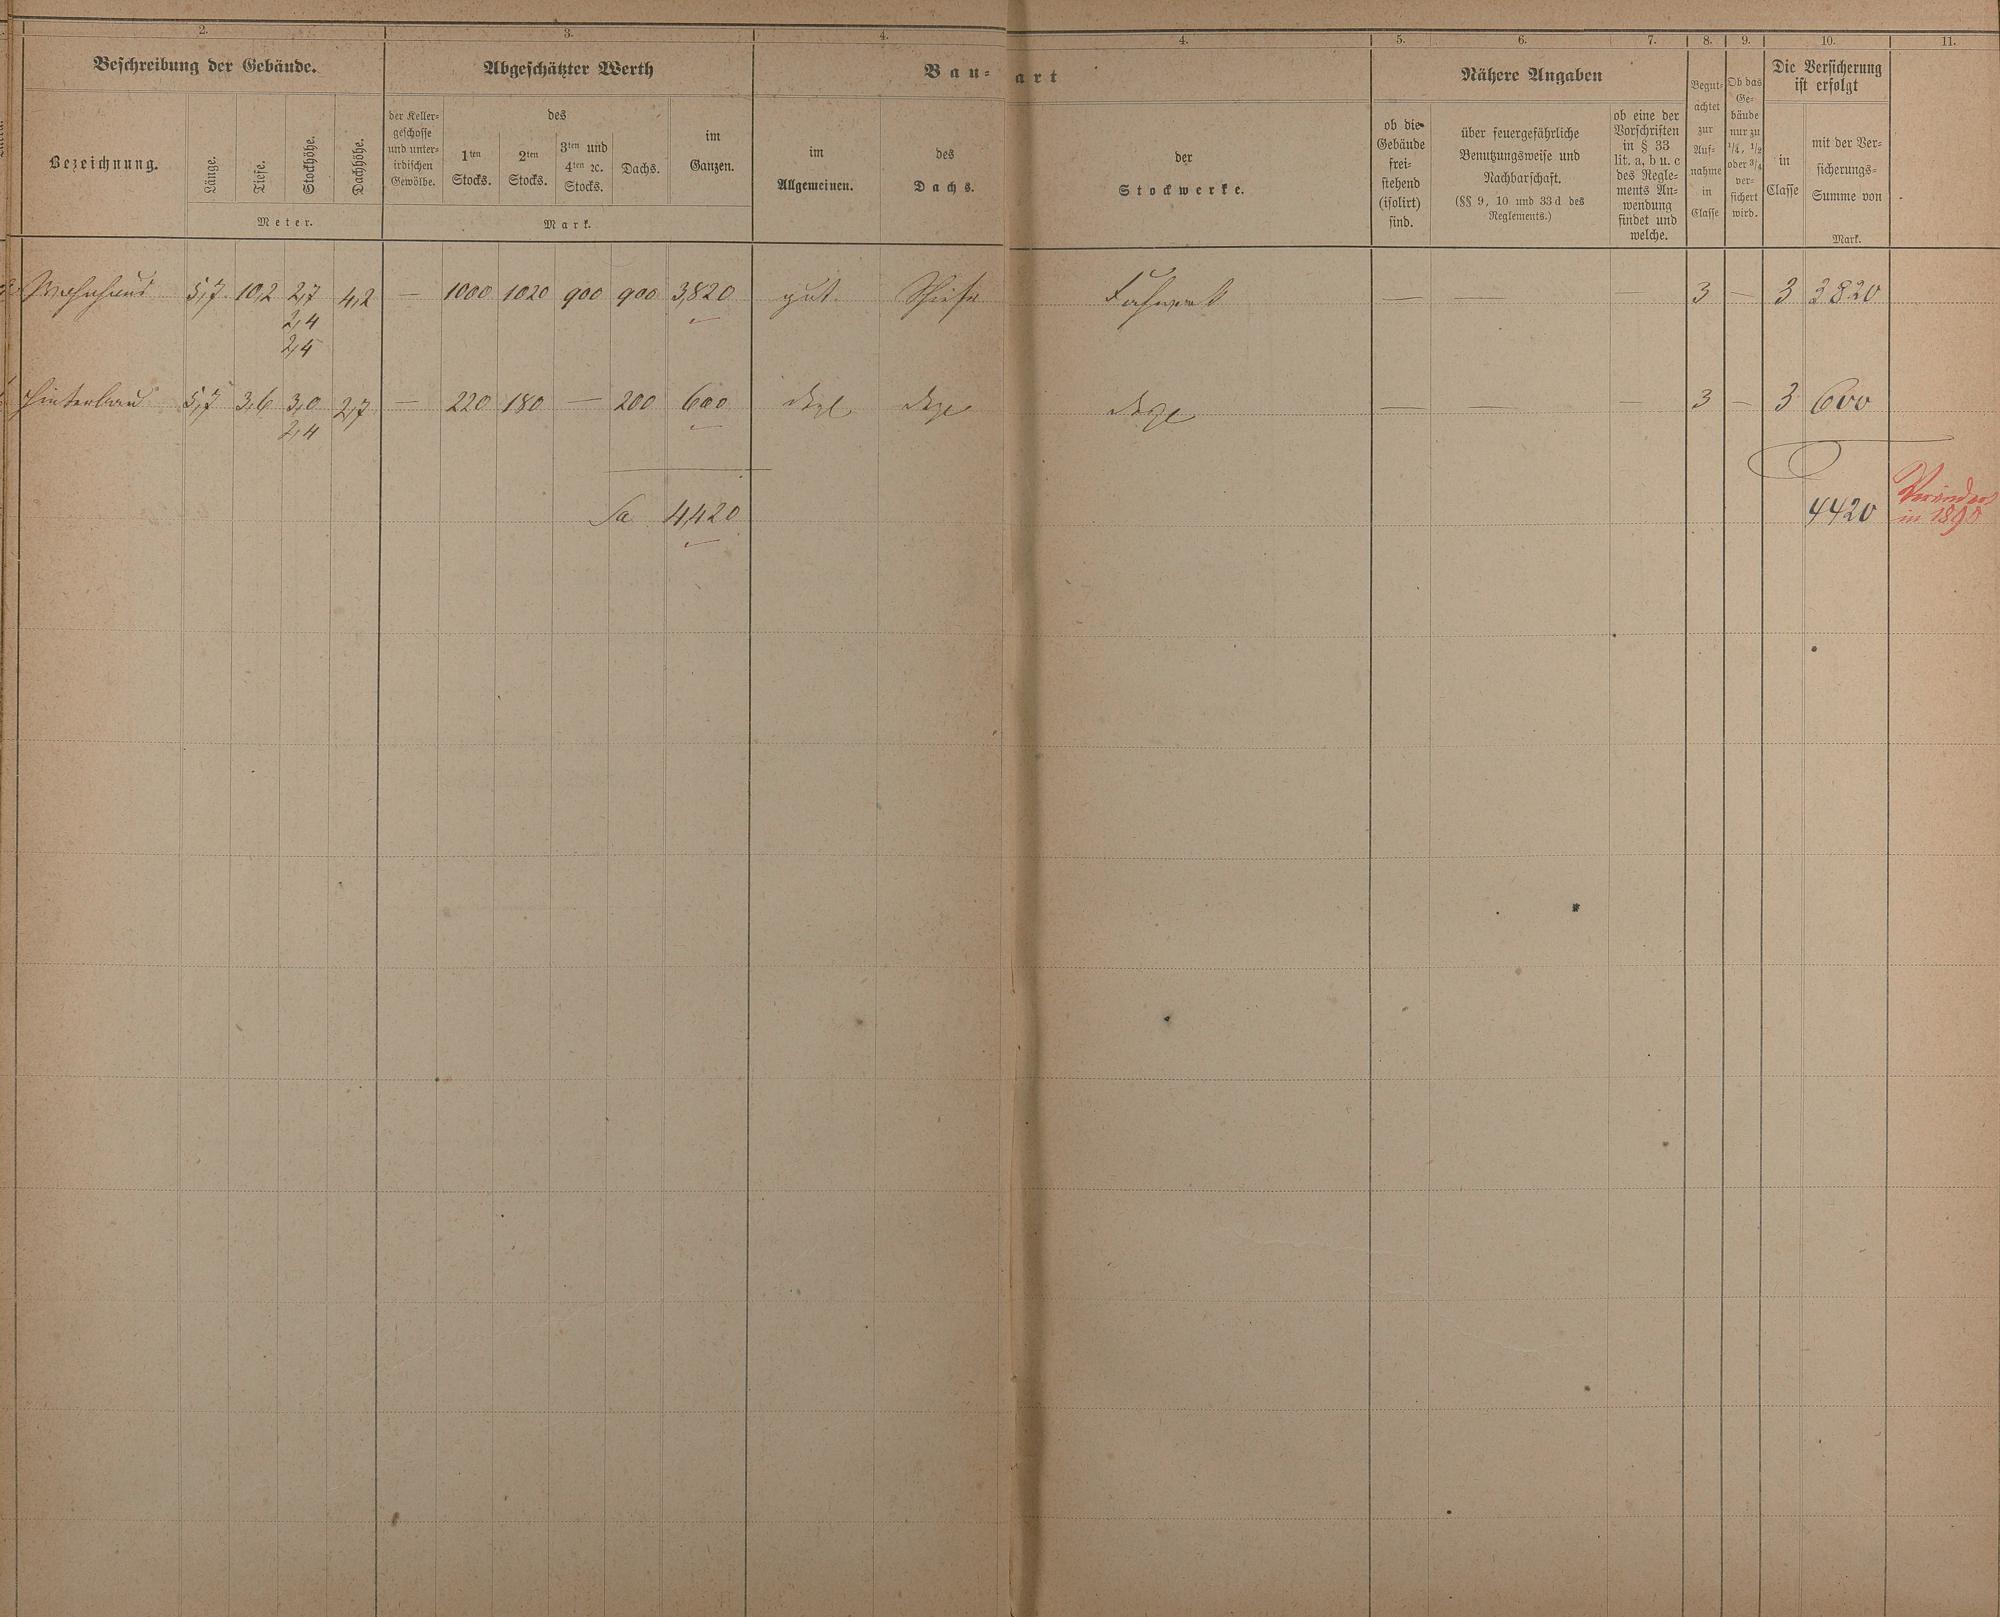 2. 3. 4. 4. 5. 6. 7. 8. 9. 10. 11.
Beschreibung der Gebäude.
Abgeschätzter Werth
Bau-art
Nähere Angaben
Die Versicherung
ist erfolgt
Bezeichnung.
Länge.
Tiefe.
Stockhöhe.
Dachhöhe.
Meter.
der Keller-
geschosse
und unter-
irdischen
Gewölbe.
des
1ten
Stocks.
2ten
Stocks.
3ten und
4ten ꝛc.
Stocks.
Dachs.
im
Ganzen.
Mark.
im
Allgemeinen.
des
Dachs.
der
Stockwerke.
ob die
Gebäude
frei-
stehend
(isolirt)
sind.
über feuergefährliche
Benutzungsweise und
Nachbarschaft.
(§§ 9, 10 und 33d des
Reglements.)
ob eine der
Vorschriften
in § 33
lit. a, b u. c
des Regle-
ments An-
wendung
findet und
welche.
Begut-
achtet
zur
Auf-
nahme
in
Classe
Ob das
Ge-
bäude
nur zu
1/4, 1/2
oder 3/4
ver-
sichert
wird.
in
Classe
mit der Ver-
sicherungs-
Summe von
Mark.
Wohnhaus 5,7 10,2 2,7 4,2 — 1000 1020 900 900 3,820 gut Schiefer Fachwerk — — — 3 — 3 3820
2,4
2,4
Hinterbau 5,7 3,6 3,0 2,7 — 220 180 — 200 600 dsgl dsgl dsgl — — — 3 — 3 600
2,4
Sa 4,420 4420
in 1890